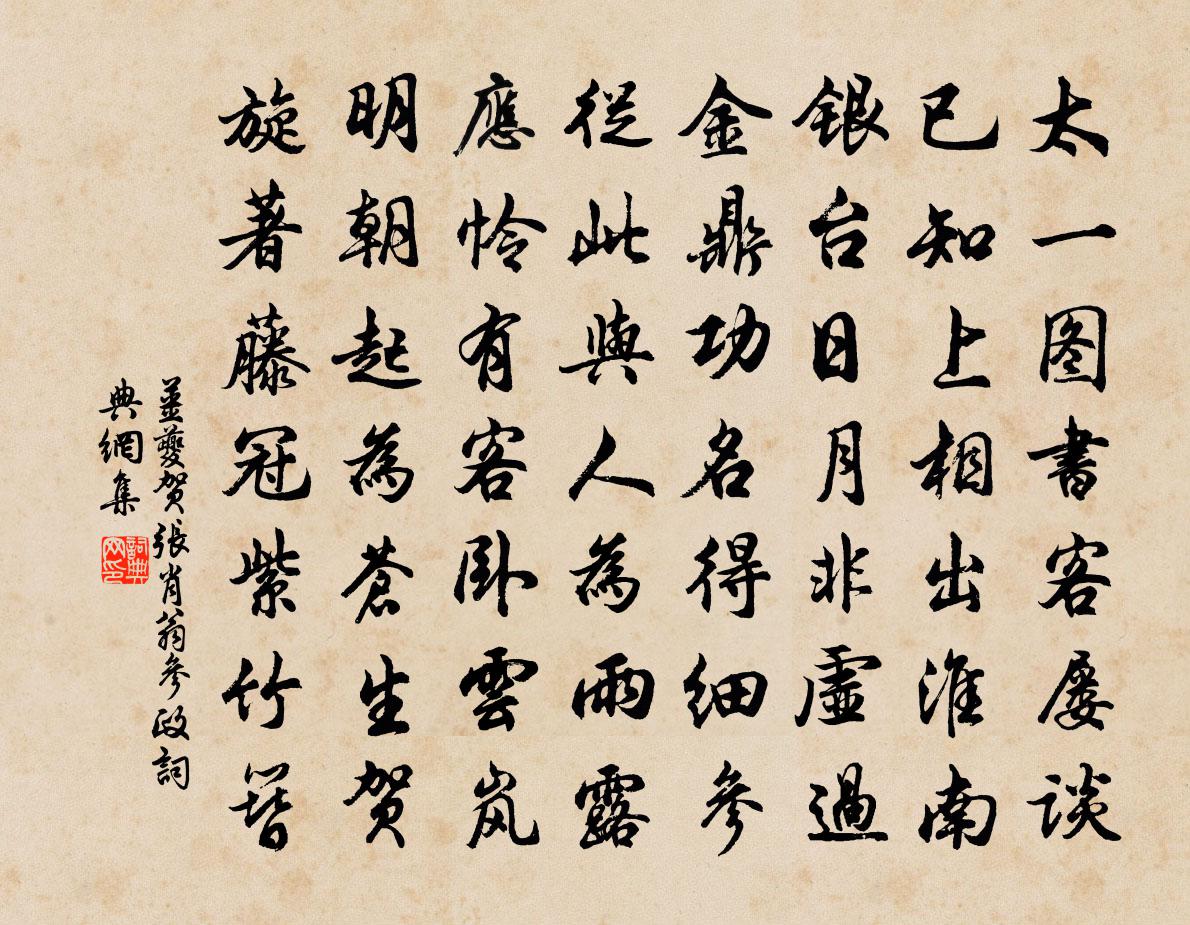 太一图書客屡談
已知上相出淮南
銀台日月非虚過
金鼎功名得細參
從此與人為雨露
應怜有客卧雲岚
明朝起為蒼生贺
旋著藤冠紫竹簪
姜夔贺張肖翁參政詞
典網集
詞典
网印